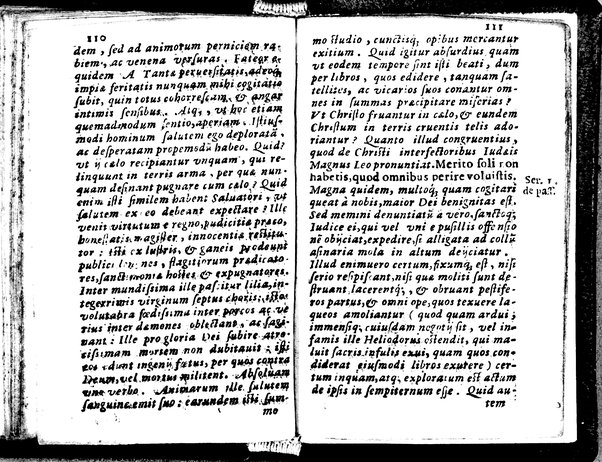 110
dem, sed ad animorum perniciem ra-
biem, ac venena versuras. Fateor e-
quidem A Tanta peruersitatis, adeoq;
impiæ feritatis nunquam mihi cogitatio
subit, quin totus cohorrescam, & angar
intimis sensibus. Atq; vt hoc etiam
quemadmodum sentio, aperiam. Istius-
modi hominum salutem ego deploratā,
ac desperatam propemodū habeo. Quid?
vt ij cælo recipiantur vnquam, qui re-
linquunt in terris arma, per quæ nun-
quam desinant pugnare cum cælo? Quid
enim isti similem habent Saluatori, vt
salutem ex eo debeant expectare? Ille
venit virtutum è regno, pudicitiæ præco,
honestatis magister, innocentiæ restitu-
tor: isti ex lustris, & ganeis prodeunt
publici lenones, flagitiorum prædicato-
res, sanctimoniæ hostes & expugnatores.
Inter mundissima ille pascitur lilia, in-
tegerrimis virginum septus choris: istos
volutabra fœdissima inter porcos ac ve-
rius inter dæmones oblectant, ac sagi-
nant: Ille pro gloria Dei subire atro-
cissimam mortem non dubitauit: isti
eos dunt ingenij fœtus, per quos contra
Deum, vel mortui militent. Absoluam
vno verbo. Animarum ille salutem
sanguine emit suo: earundem isti sum-
mo
111
mo studio, cunctisq; opibus mercantur
exitium. Quid igitur absurdius quam
vt eodem tempore sint isti beati, dum
per libros, quos edidere, tanquam sa-
tellites, ac vicarios suos conantur om-
nes in summas præcipitare miserias?
Vt Christo fruantur in cælo, & eundem
Christum in terris cruentis telis ado-
riantur? Quanto illud congruentius,
quod de Christi interfectoribus Iudæis
Magnus Leo pronuntiat. Merito soli non
habetis, quod omnibus perire voluistis.
Ser. 1.
de pass.
Magna quidem, multoq; quam cogitari
queat à nobis, maior Dei benignitas est.
Sed memini denuntiatū à vero, sanctoq;
Iudice ei, qui vel vni è pusillis offensio
nē obijciat, expedire, si alligata ad collū
asinaria mola in altum deijciatur.
Illud enimuero certum, fixumq; est, nisi
serio resipiscant, nisi quæ moliti sunt de-
struant, lacerentq;, & obruant pestife-
ros partus, & omni ope, quos texuere la-
queos amoliantur ( quod quam ardui;
immensiq; cuiusdam negotij sit, vel in-
famis ille Heliodorus ostendit, qui ma-
luit sacris infulis exui, quam quos con-
diderat eiusmodi libros exurere ) cer-
tum inquam, atq; exploratum est actum
de ipsis in sempiternum esse. Quid au-
tem